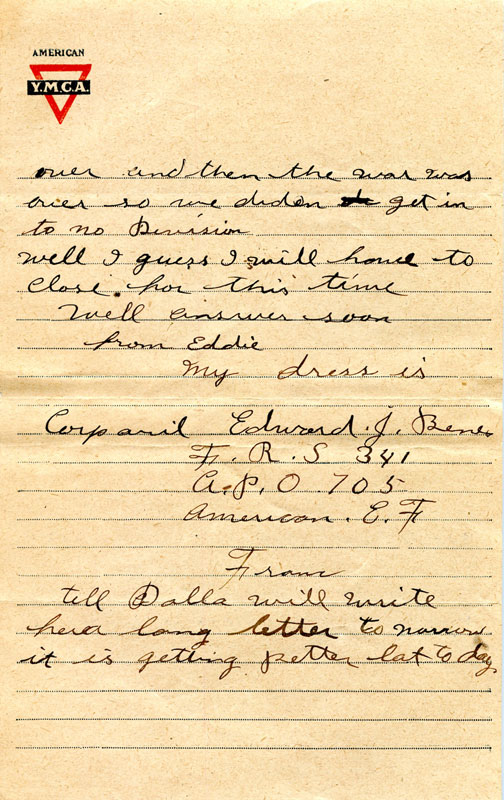 AMERICAN
Y.M.C.A.
over and then the war was
over so we diden get in
to no Division
well I guess I will hone to
Close for this time
Well answer soon
from Eddie
My dress is
Corparil Edward. J. Benes
F. R. S 341
A. P. O. 705
American. E. F
From
tell Dalla will write
her a long letter to norrow
it is getting petter lat to day